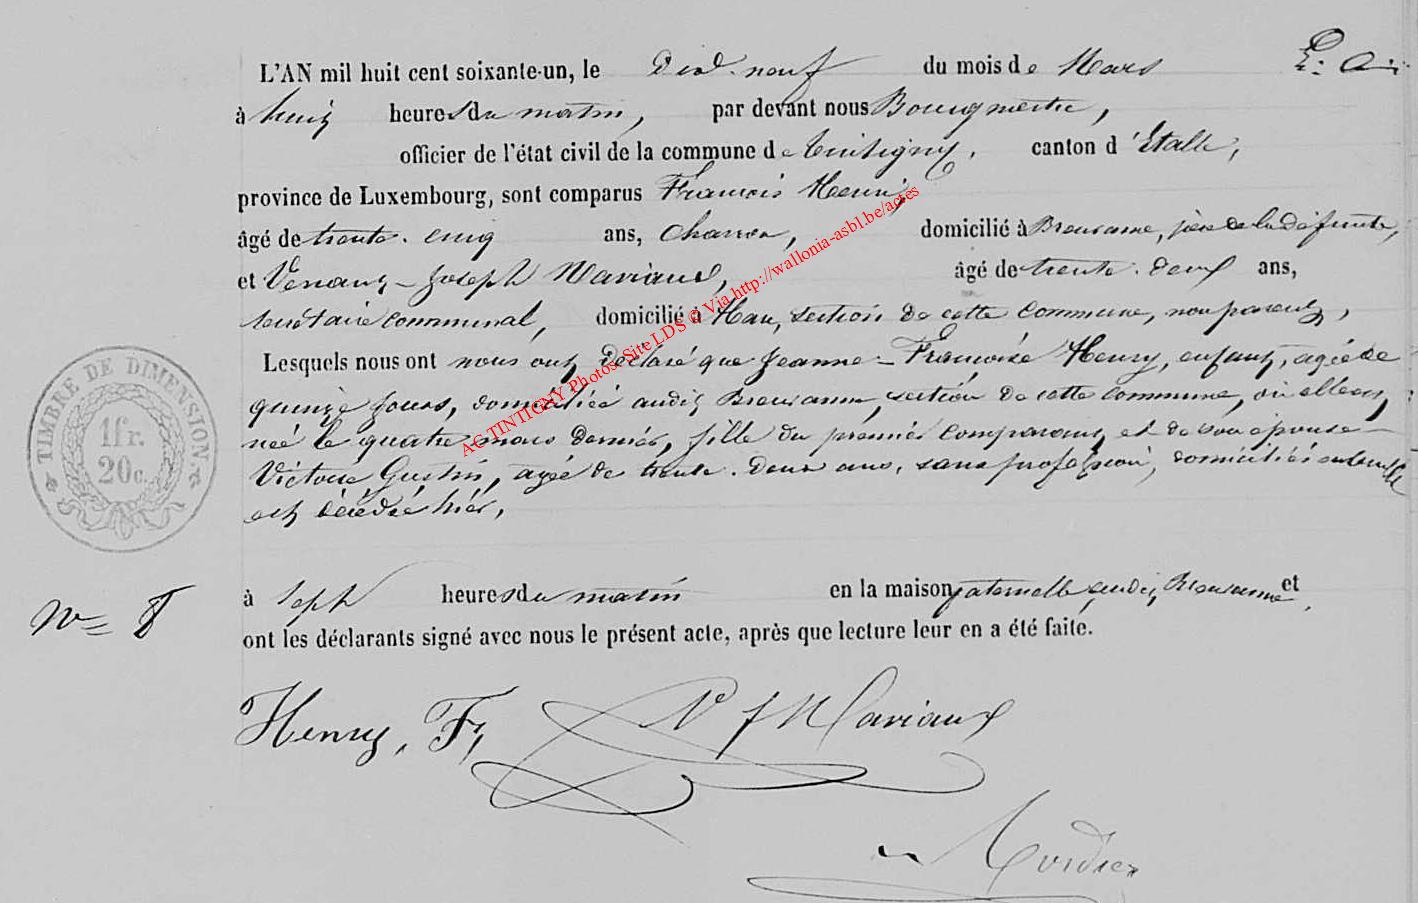 L'AN mil huit cent soixante-un, le Dix-neuf du mois de Mars
à huit heures du matin, par devant nous Bourgmestre,
officier de l'état civil de la commune de Tintigny, canton d'Etalle,
province de Luxembourg, sont comparus François Henri,
âgé de trente-cinq ans, charron, domicilié à Breuvanne, père de la défunte,
et Venant-Joseph Mariaux, âgé de trente-deux ans,
secrétaire communal, domicilié à Han, section de cette commune, non parent,
Lesquels nous ont nous ont déclaré que Jeanne-Françoise Henry, enfant, agée de
quinze jours, domiciliée audit Breuvanne, section de cette commune, où elle est
née le quatre mars dernier, fille du premier comparant et de son épouse
Victoire Gustin, agée de trente-deux ans, sans profession, domiciliés ensemble
est décédée hier,
à sept heures du matin en la maison paternelle, audit Breuvanne et
ont les déclarants signé avec nous le présent acte, après que lecture leur en a été faite.
Henry, F, V J Mariaux
TIMBRE DE DIMENSION.
1fr.
20c.
N° 8
AC TINTIGNY Photos Site LDS © Via http://wallonia-asbl.be/actes